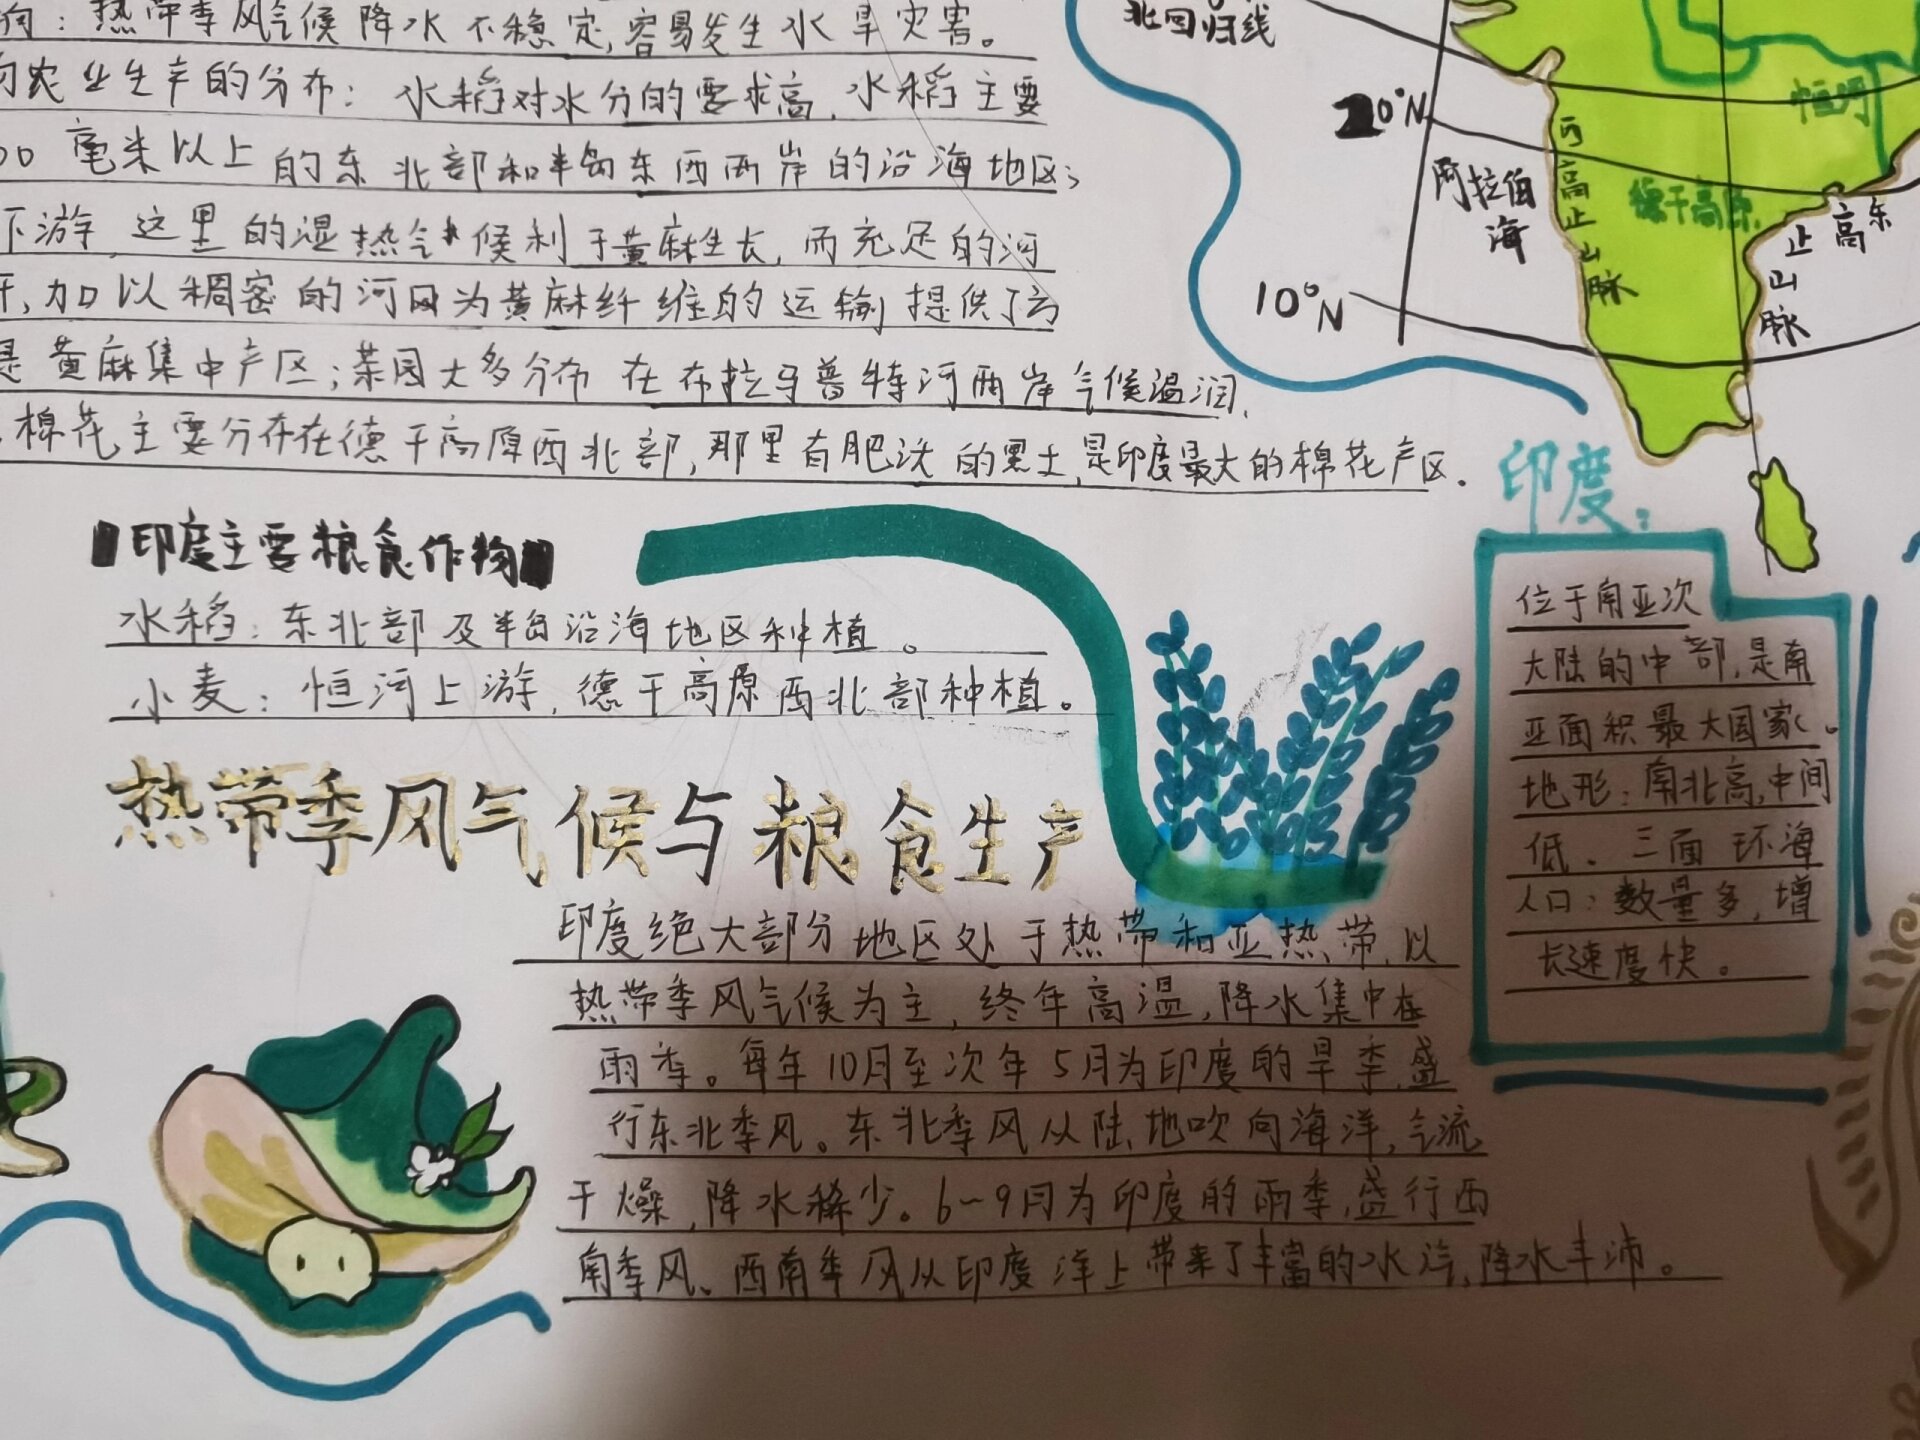 热带季风气候降水不稳定,容易发生水旱灾害。
农业生产的分布：水稻对水分的要求高,水稻主要
00毫米以上的东北部和半岛东西两岸的沿海地区;
下游,这里的湿热气候利于黄麻生长,而充足的河
,加以稠密的河网为黄麻纤维的运输提供了方
是黄麻集中产区;茶园大多分布在布拉马普特河两岸气候温润,
棉花主要分布在德干高原西北部,那里有肥沃的黑土,是印度最大的棉花产区.
北回归线
20°N
10°N
阿拉伯
海
高止山脉
恒河
德干高原
东高止山脉
印度主要粮食作物
水稻：东北部及半岛沿海地区种植。
小麦：恒河上游,德干高原西北部种植。
热带季风气候与粮食生产
印度绝大部分地区处于热带和亚热带,以
热带季风气候为主,终年高温,降水集中在
雨季。每年10月至次年5月为印度的旱季,盛
行东北季风。东北季风从陆地吹向海洋,气流
干燥,降水稀少。6-9月为印度的雨季,盛行西
南季风、西南季风从印度洋上带来了丰富的水汽,降水丰沛。
印度：
位于南亚次
大陆的中部,是南
亚面积最大国家。
地形：南北高,中间
低、三面环海
人口：数量多,增
长速度快。